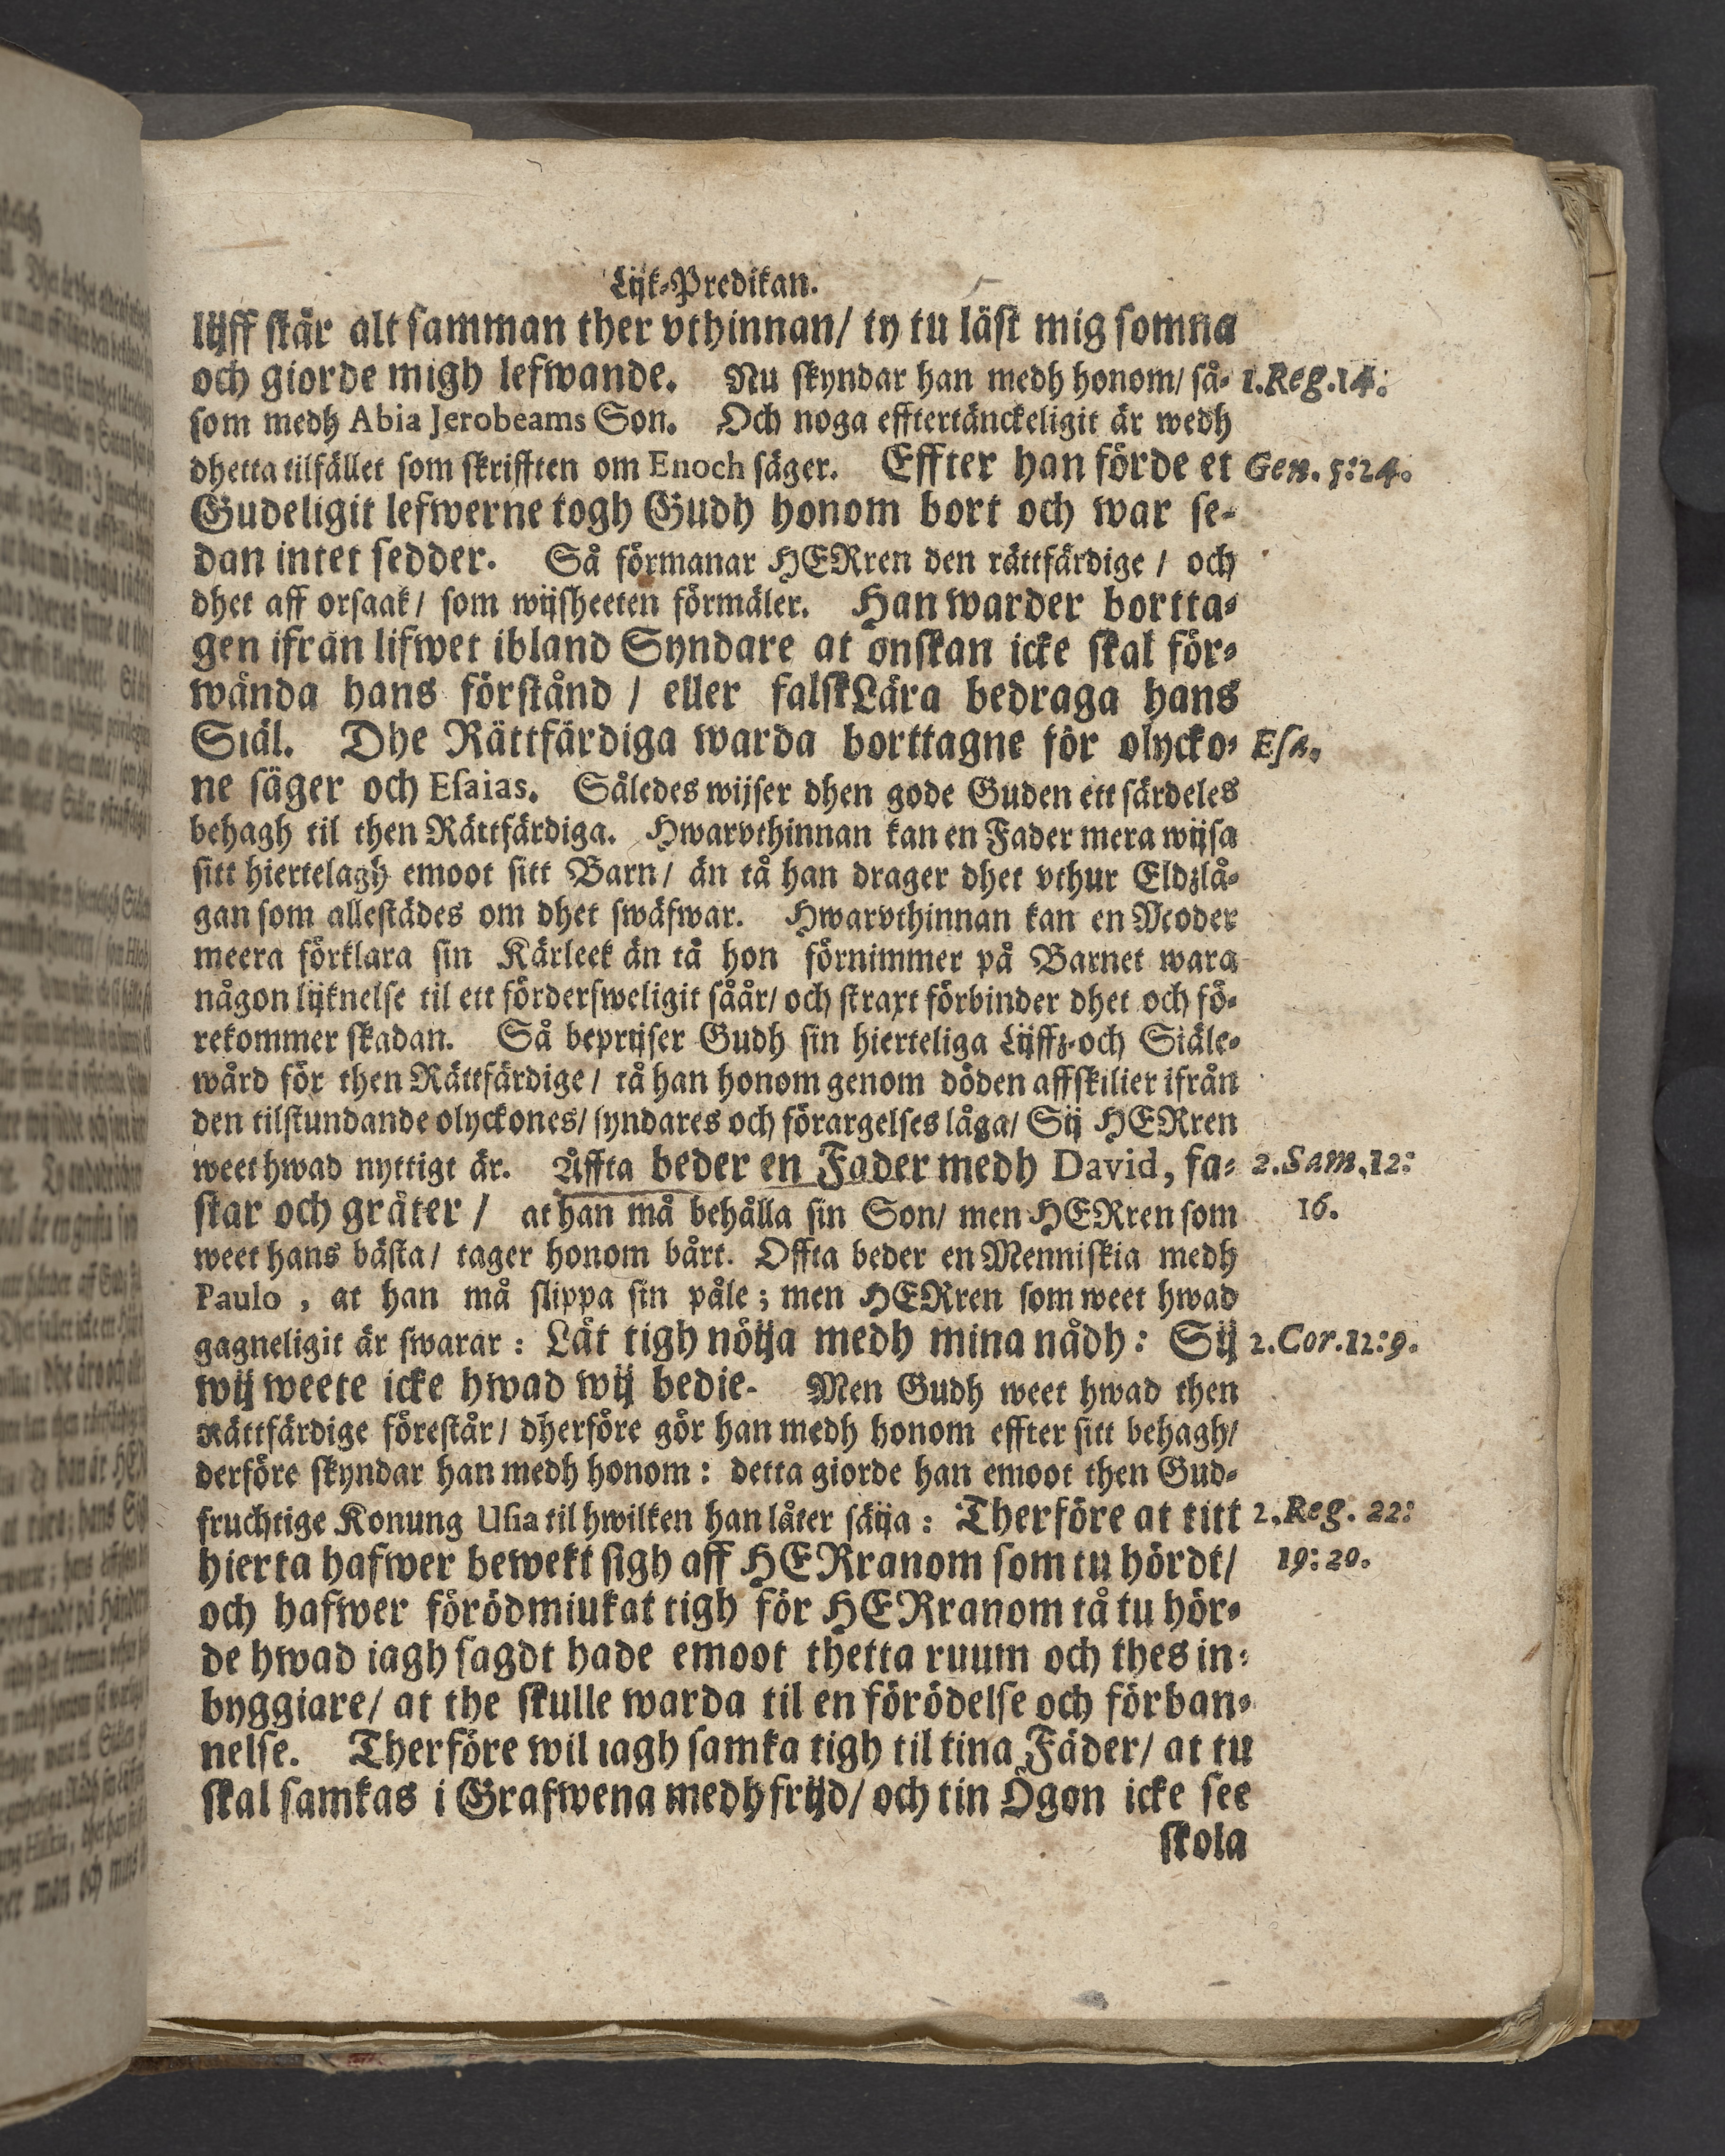 Lijk-Predikan.
lijff står alt samman ther vthinnan/ ty tu läst mig somna
och giorde migh lefwande. Nu skyndar han medh honom/ så- 1.Reg.14:
som medh Abia Jerobeams Son. Och noga efftertänckeligit är wedh
dhetta tilfället som skrifften om Enoch säger. Effter han förde et Gen. 5:24.
Gudeligit lefwerne togh Gudh honom bort och war se-
dan intet sedder. Så förmanar HERren den rättfärdige / och
dhet aff orsaak/ som wijsheeten förmäler. Han warder bortta-
gen ifrån lifwet ibland Syndare at onskan icke skal för-
wända hans förstånd / eller falsk Lära bedraga hans
Siäl. Dhe Rättfärdiga warda borttagne för olycko- Esa.
ne säger och Esaias. Således wijser dhen gode Guden ett särdeles
behagh til then Rättfärdiga. Hwarvthinnan kan en Fader mera wijsa
sitt hiertelagh emoot sitt Barn/ än tå han drager dhet vthur Eldzlå-
gan som allestädes om dhet swäfwar. Hwarvthinnan kan en Moder
meera förklara sin Kärleek än tå hon förnimmer på Barnet wara
någon lijknelse til ett förderfweligit såår/ och straxt förbinder dhet och fö-
rekommer skadan. Så beprijser Gudh sin hierteliga Lijffz-och Siäle-
wård för then Rättfärdige/ tå han honom genom döden affskilier ifrån
den tilstundande olyckones/ syndares och förargelses låga/ Sij HERren
weet hwad nyttigt är. Åffta beder en Fader medh David, fa- 2.Sam.12:
star och gråter / at han må behålla sin Son/ men HERren som 16.
weet hans bästa/ tager honom bårt. Offta beder en Menniskia medh
Paulo , at han må slippa sin påle; men HERren som weet hwad
gagneligit är swarar: Låt tigh nöija medh mina nådh: Sij 2.Cor.12:9.
wij weete icke hwad wij bedie. Men Gudh weet hwad then
Rättfärdige förestår/ dherföre gör han medh honom effter sitt behagh/
derföre skyndar han medh honom: detta giorde han emoot then Gud-
fruchtige Konung Usia til hwilken han låter säija: Therföre at titt 2.Reg. 22:
hierta hafwer bewekt sigh aff HERranom som tu hördt/ 19:20.
och hafwer förödmiukat tigh för HERranom tå tu hör-
de hwad iagh sagdt hade emoot thetta ruum och thes in-
byggiare/ at the skulle warda til en förödelse och förban-
nelse. Therföre wil iagh samka tigh til tina Fäder/ at tu
skal samkas i Grafwena medh frijd/ och tin Ögon icke see
skola